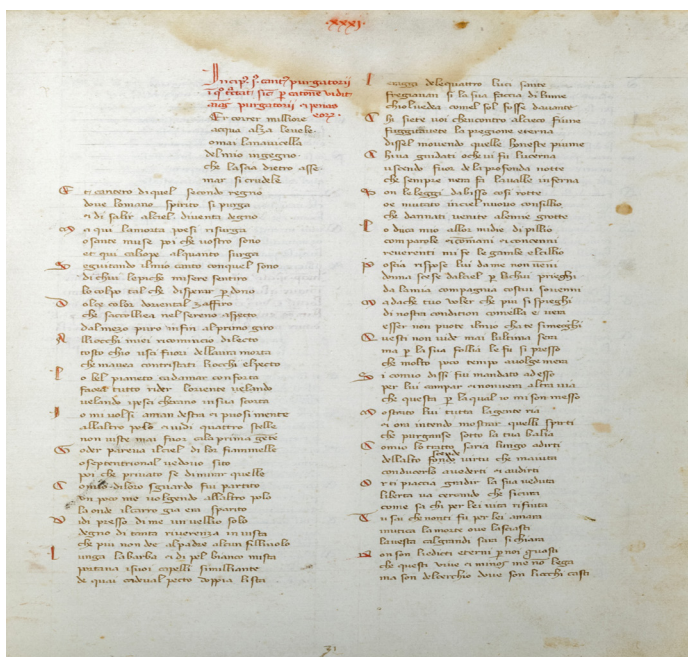 .xxxi.
Er correr milliore
acqua alza le uele
omai la nauicella
del mio ingegno
che lascia dietro asse
mar si crudele
E cantero di quel secondo regno
doue lomano spirito si purga
& di salir al ciel diuenta degno
M a qui la morta poesi risurga
o sante muse poi che uostro sono
et qui caliope alquanto surga
S eguitando il mio canto con quel sono
di chui le piche misere sentiro
lo colpo tal che disperar perdono
D olce color doriental zaffiro
che saccogliea nel sereno aspecto
dal mezo puro infin al primo giro
A llocchi miei ricomincio dilecto
tosto chio usci fuori dellaura morta
che mauea contristati llocchi el pecto
L o bel pianeto cadamar conforta
faceua tutto rider loriente
uelando i pesci cherano in sua scorta
I o mi uolsi a man destra & puosi mente
allaltro polo & uidi quattro stelle
non uiste mai fuor cala prima gente
G oder pareua il ciel di lor fiammelle
o septentrional uedouo sito
poi che priuato se di mirar quelle
C omio di loro sguardo fui partito
un poco me uolgendo allaltro polo
la onde il carro gia era sparito
V idi presso di me un uellio solo
degno di tanta riuerenza in uista
che piu non dee al padre alcun filliuolo
L unga la barba & di pel bianco mista
portaua i suoi capelli simigliante
de quai cadeual pecto doppia lista
L i raggi dele quattro luci sante
fregiauan si la sua faccia di lume
chio l uedea comel sol fosse dauante
C hi siete uoi che ncontro al cieco fiume
fuggitauete la pregione eterna
dissel mouendo quelle honeste piume
C hiua guidati o chi ui fu lucerna
uscendo fuor dela profonda notte
che sempre nera fa la ualle inferna
S on le leggi dabisso cosi rotte
o e mutato in ciel nuouo consillio
che dannati uenite ale mie grotte
L o duca mio allor mi die di pillio
con parole & con mani & con cenni
reuerenti mi fe le gambe el cillio
P oscia rispose lui da me non uenni
donna scese dal ciel per li chui prieghi
dela mia compagnia costui souenni
M a da che tuo uoler che piu si spieghi
di nostra condition comella e uera
esser non puote il mio cha te si nieghi
Q uesti non uide mai lultima sera
ma per la sua follia le fu si presso
che molto poco tempo auolger era
S i comio dissi fui mandato ad esso
per lui campar & non uera altra uia
che questa per la qual io mi son messo
M ostrato ho lui tutta la gente ria
& ora intendo mostrar quelli spirti
che purganse sotto la tua balia
C omio lo tratto saria lungo a dirti
dellalto scende uirtu che maiuta
conducerlo a uederti & a udirti
O r ti piaccia gradir la sua ueduta
liberta ua cercando che si cara
come sa chi per lei uita rifiuta
T u sai che non ti fu per lei amara
in utica la morte oue lasciasti
la uesta cal gran di sara si chiara
N on son li edicti eterni per noi guasti
che questi uiue & minos me no lega
ma son del cerchio doue son liocchi casti
31